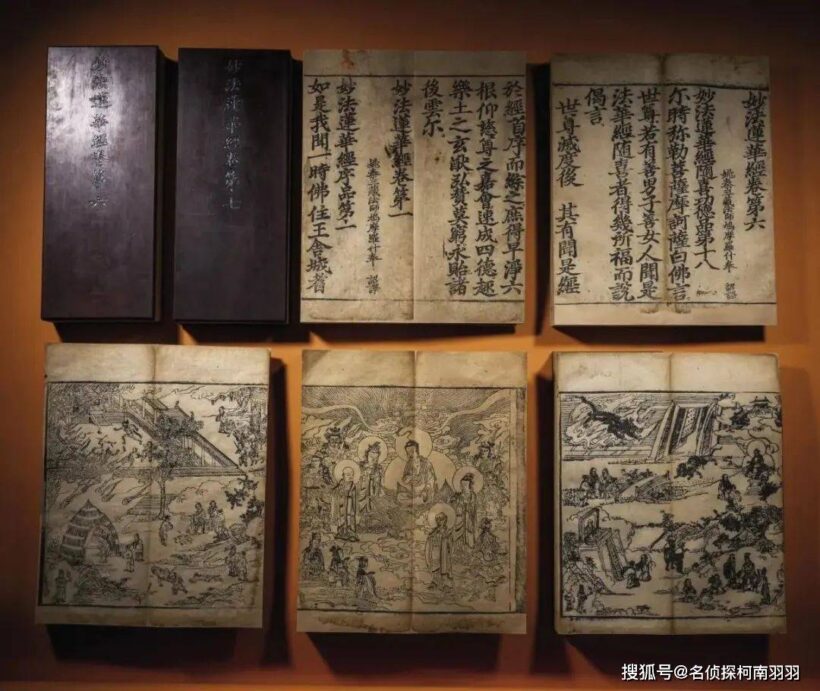 妙法蓮華經卷第六
妙法蓮華經卷第七
於經首序而綜之庶得早淨六
根仰慈尊之嘉會速成四德趣
樂土之玄猷弘贊莫窮永貽諸
後雲尔
妙法蓮華經卷第一
姚秦三藏法師鳩摩羅什奉 詔譯
妙法蓮華經序品第一
如是我聞一時佛住王舍城耆
妙法蓮華經卷第六
姚秦三藏法師鳩摩羅什奉 詔譯
妙法蓮華經隨喜功德品第十八
尔時弥勒菩薩摩訶薩白佛言
世尊若有善男子善女人聞是
法華經隨喜者得幾所福而說
偈言
世尊滅度後 其有聞是經
搜狐号@名侦探柯南羽羽